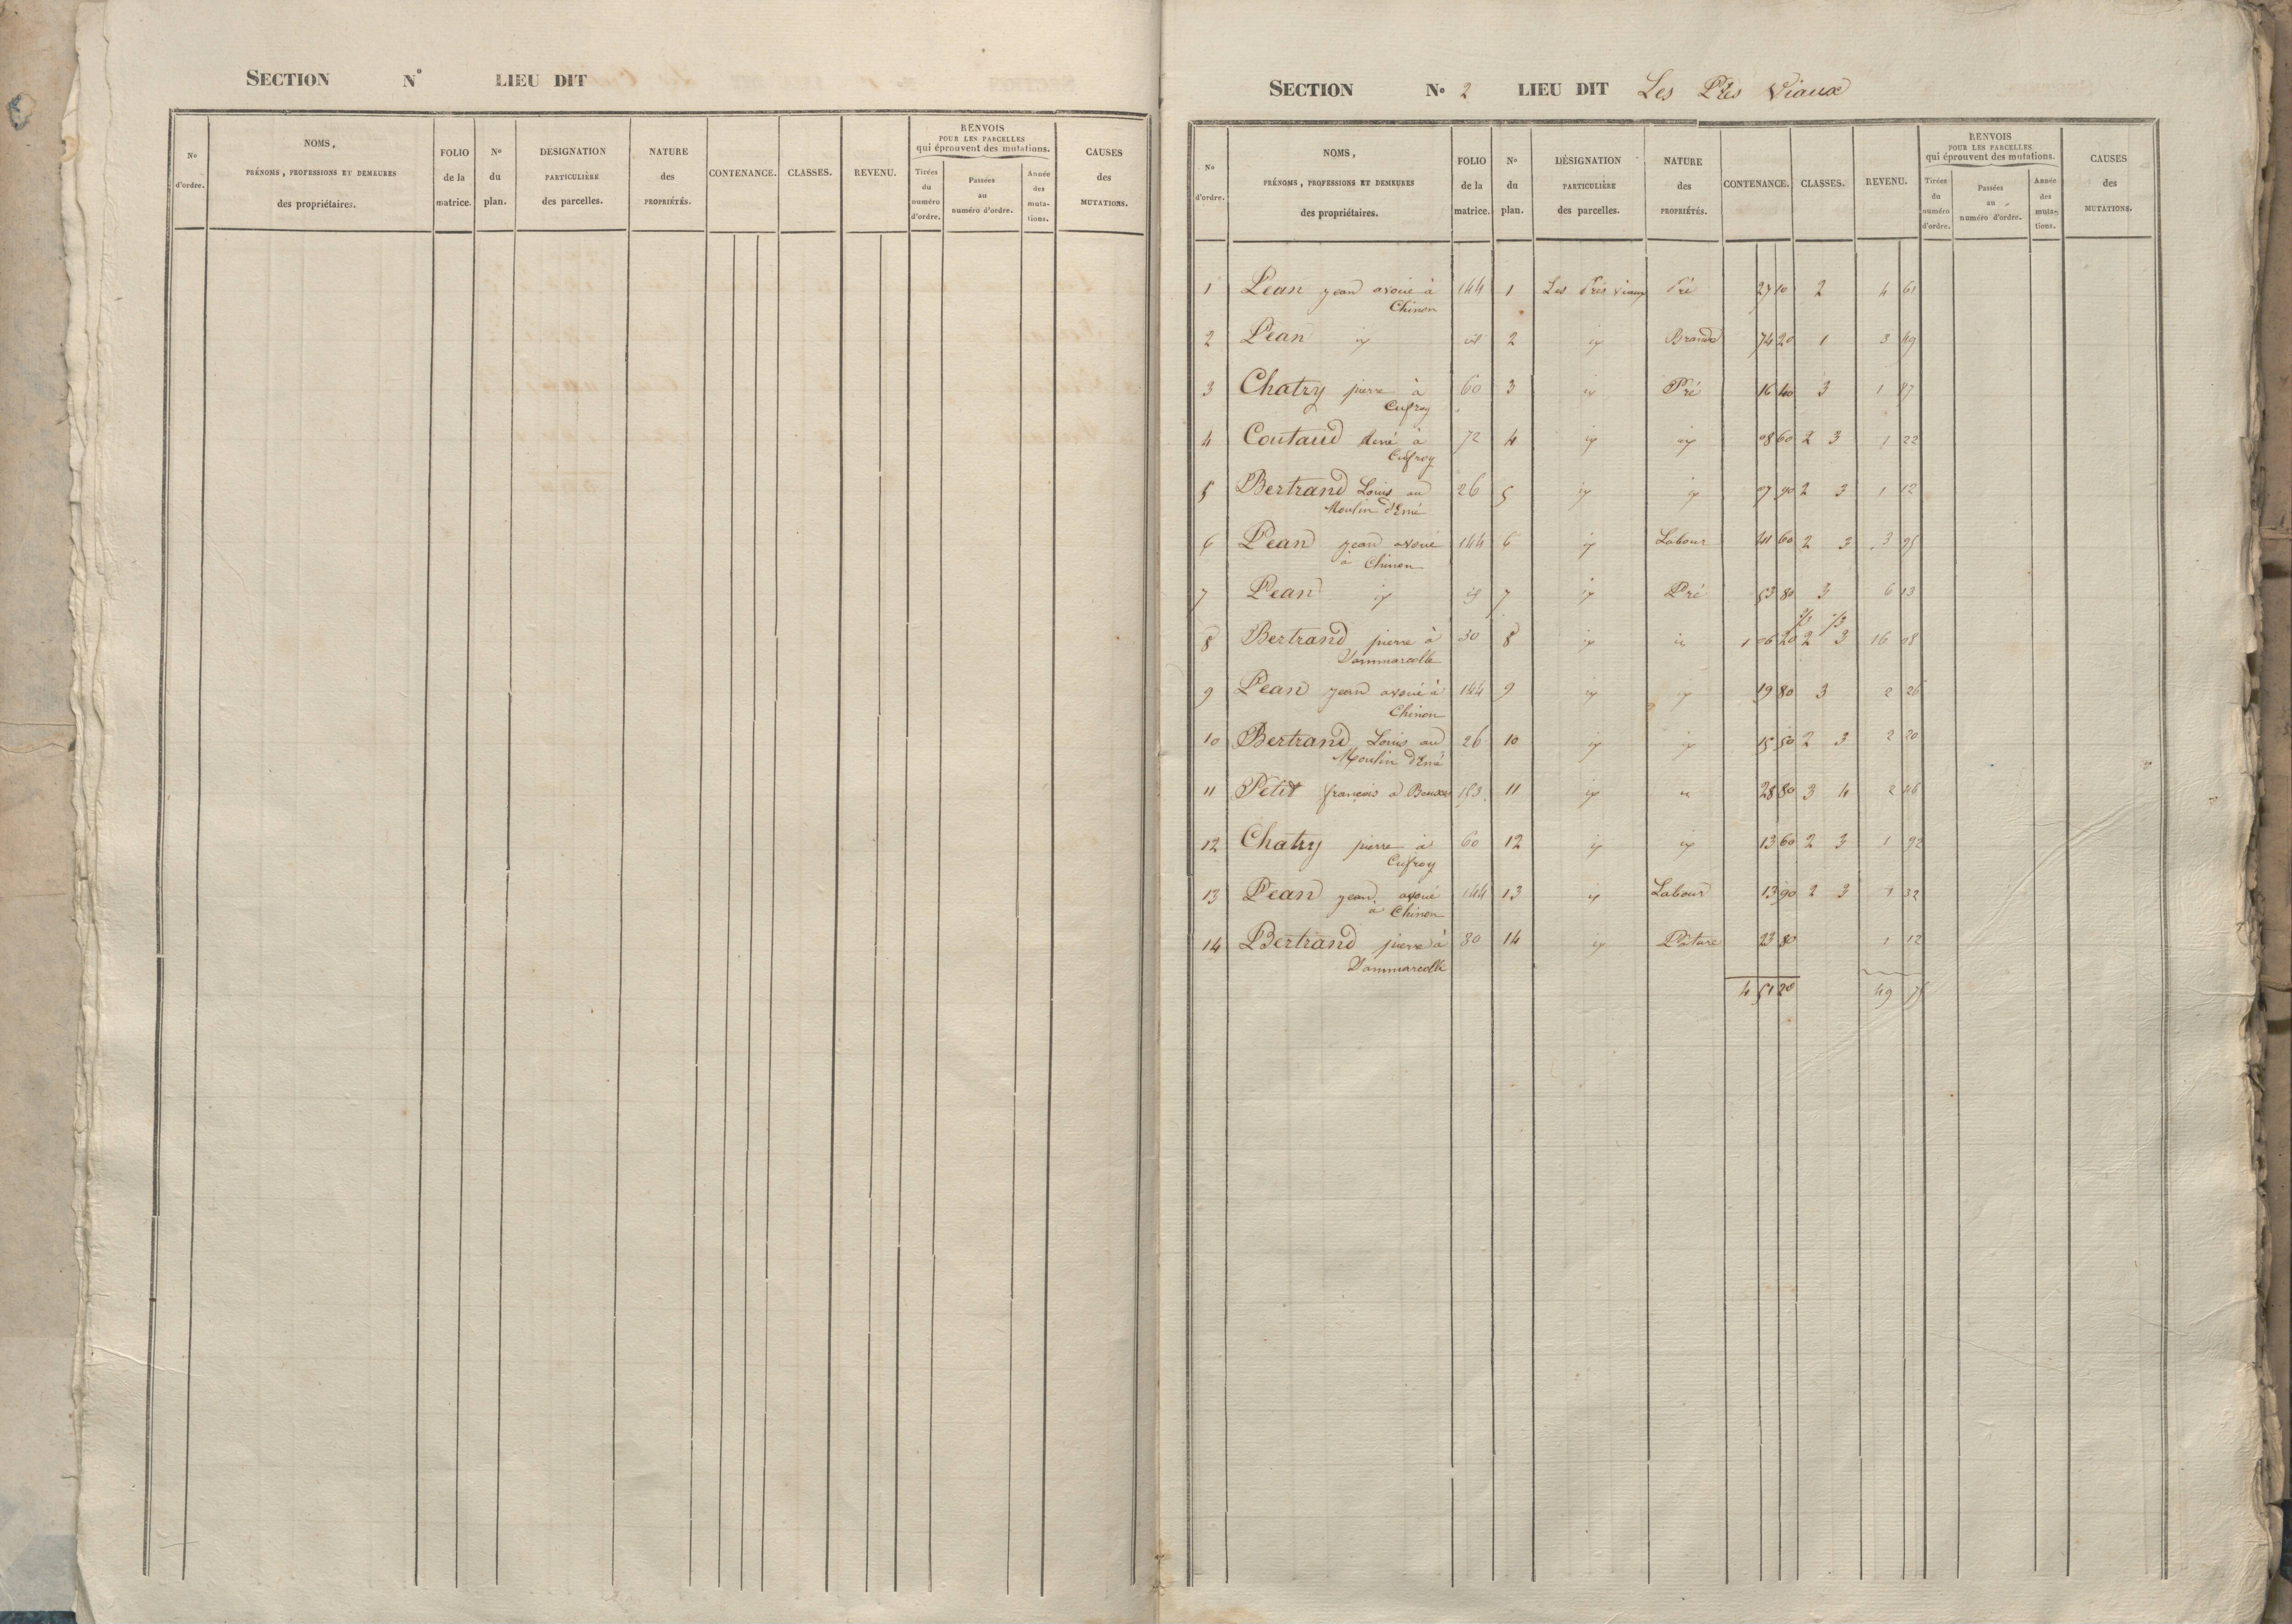 SECTION N° LIEU DIT
N° d'ordre. NOMS, PRÉNOMS, PROFESSIONS ET DEMEURES des propriétaires. FOLIO de la matrice. N° du plan. DÉSIGNATION PARTICULIÈRE des parcelles. NATURE des PROPRIÉTÉS. CONTENANCE. CLASSES. REVENU. RENVOIS POUR LES PARCELLES qui éprouvent des mutations. Tirées du numéro d'ordre. Passées au numéro d'ordre. Année des mutations. CAUSES des MUTATIONS.
SECTION N° 2 LIEU DIT Les Prés Viaux
N° d'ordre. NOMS, PRÉNOMS, PROFESSIONS ET DEMEURES des propriétaires. FOLIO de la matrice. N° du plan. DÉSIGNATION PARTICULIÈRE des parcelles. NATURE des PROPRIÉTÉS. CONTENANCE. CLASSES. REVENU. RENVOIS POUR LES PARCELLES qui éprouvent des mutations. Tirées du numéro d'ordre. Passées au numéro d'ordre. Année des mutations. CAUSES des MUTATIONS.
1 Pean jean avoué à 144 1 Les Prés Viaux Pré 27 10 2 4 61
Chinon
2 Pean id 2 74 20 1 3 49
3 Chatry pierre à 60 3 Pré 16 40 3 1 87
4 Coutaud René à 72 4 08 60 2 3 1 22
5 Bertrand Louis au 26 5 07 90 2 3 1 12
Moulin d'Emé
6 Pean jean avoué 144 6 Labour 41 60 2 3 3 95
à Chinon
7 Pean 7 Pré 53 80 3 6 13
8 Bertrand pierre à 30 8 1 06 20 2 3 16 08
Dammarcolle
9 Pean jean avoué à 144 9 19 80 3 2 26
Chinon
10 Bertrand Louis au 26 10 15 50 2 3 2 20
Moulin d'Emé
11 Petit françois à 153 11 28 80 3 4 2 46
12 Chatry pierre à 60 12 13 60 2 3 1 92
13 Pean jean avoué 144 13 Labour 13 90 2 3 1 32
à Chinon
14 Bertrand pierre à 30 14 Pâture 23 80 1 12
Dammarcolle
4 51 20 49 75